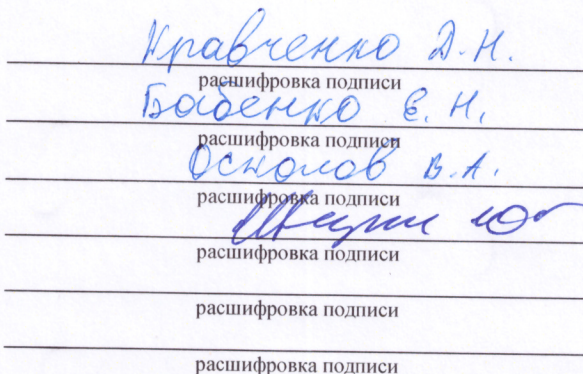 Кравченко Д.Н.
расшифровка подписи
Бабенко Е.Н.
расшифровка подписи
Осколов В.А.
расшифровка подписи
расшифровка подписи
расшифровка подписи
расшифровка подписи